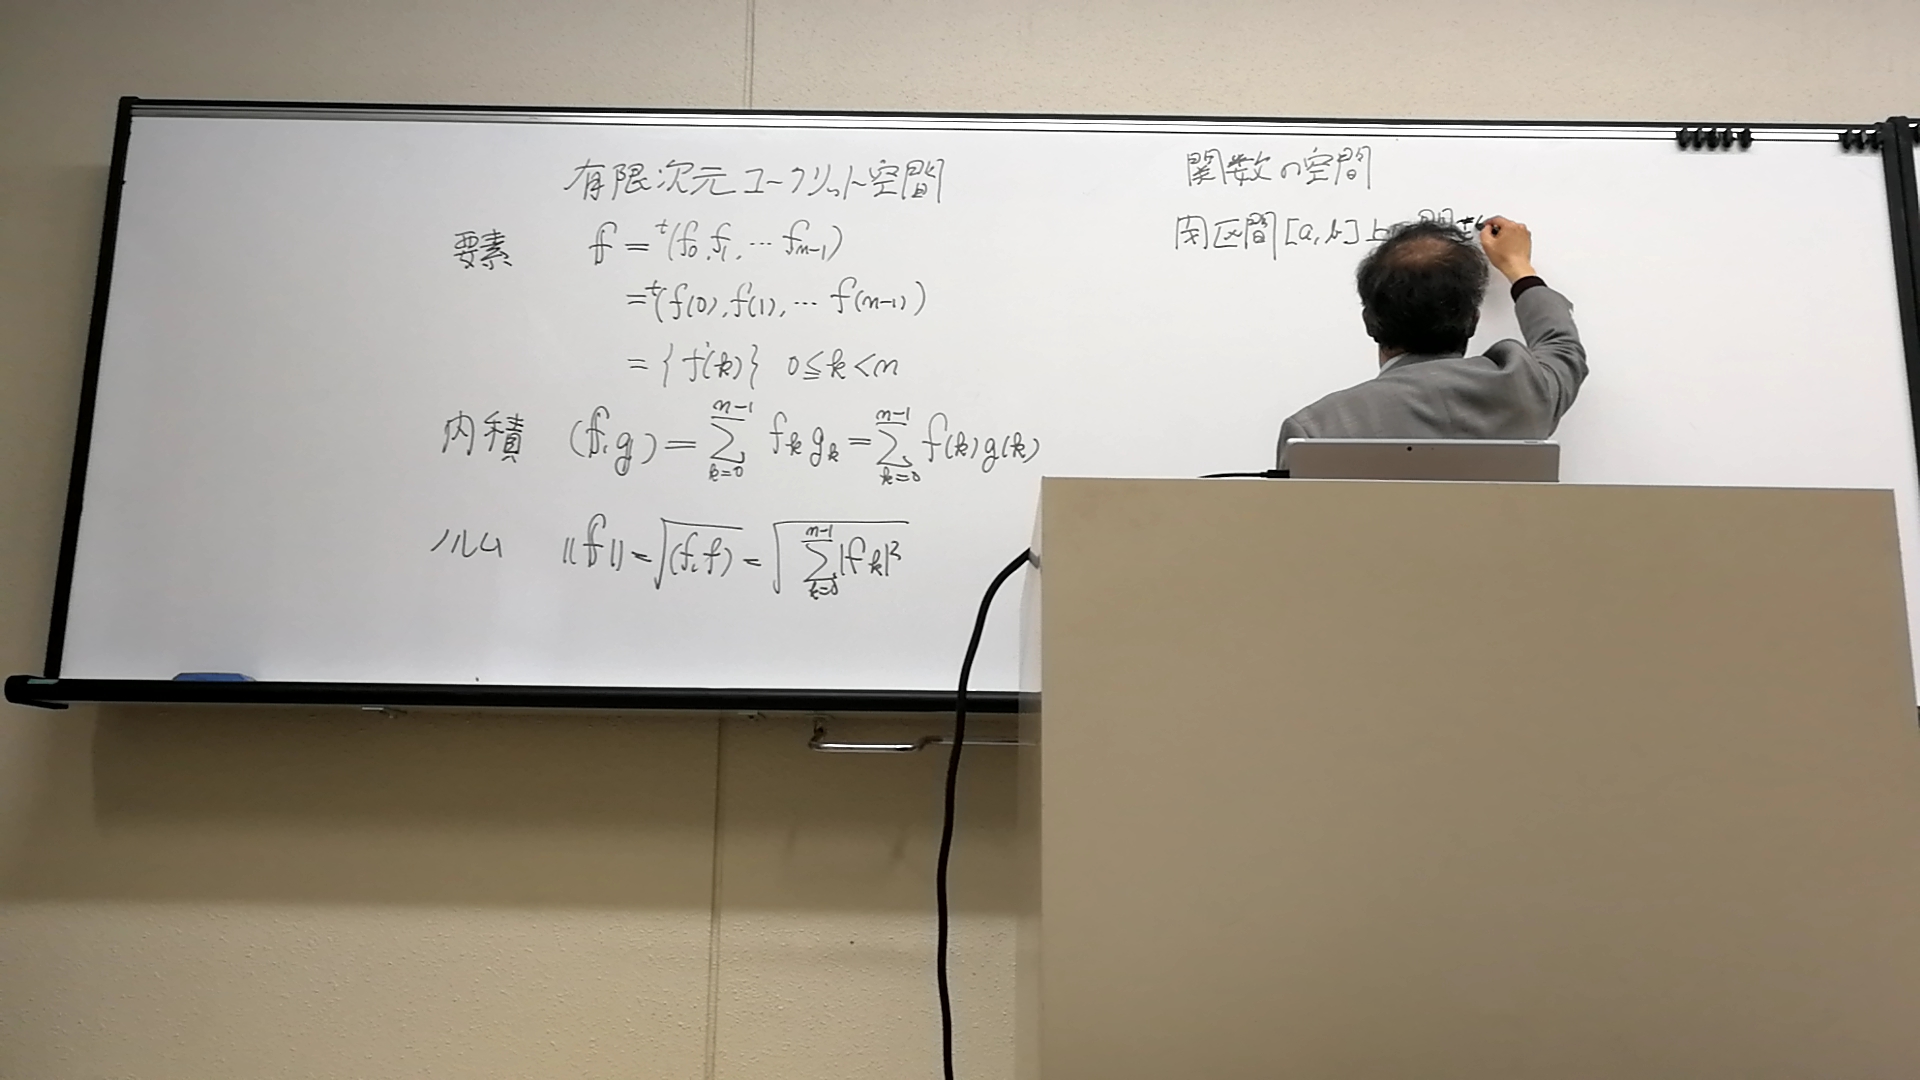 有限次元ユークリット空間
要素 f = ᵗ(f₀, f₁, … fₙ₋₁)
= ᵗ(f(0), f(1), … f(n-1))
= { f(k) } 0 ≦ k < n
内積 (f, g) = ∑_{k=0}^{n-1} f_k g_k = ∑_{k=0}^{n-1} f(k) g(k)
ノルム ||f|| = √(f, f) = √∑_{k=0}^{n-1} |f_k|²
関数の空間
閉区間 [a, b] 上 関